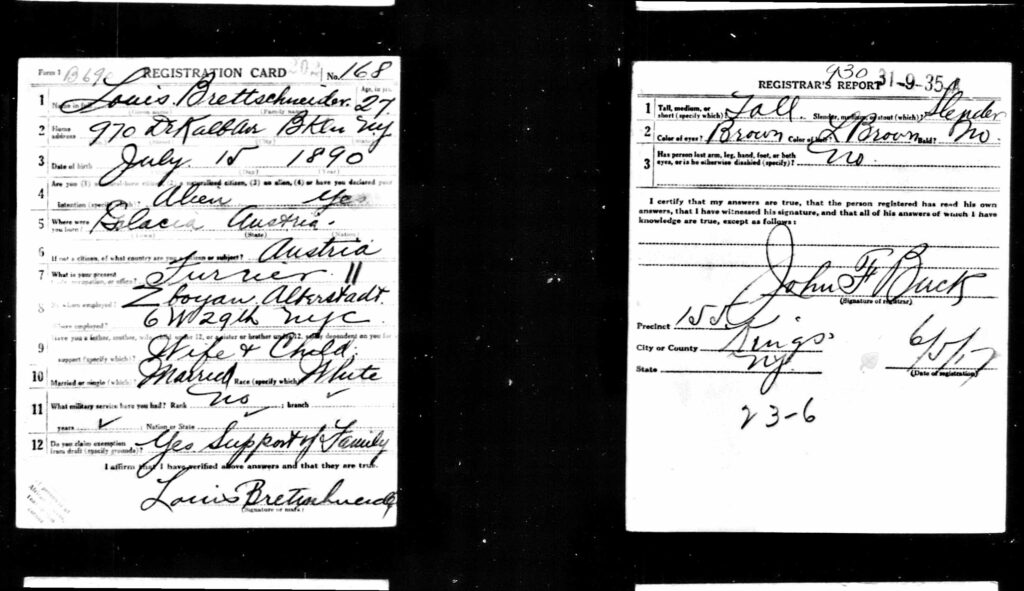 Form 1 B690 REGISTRATION CARD No. 168
1 Name in full Louis Brettschneider Age, in yrs. 27
(Given name) (Family name)
2 Home address 970 DeKalb Av Bkln NY
3 Date of birth July 15 1890
(Month) (Day) (Year)
4 Are you (1) a natural-born citizen, (2) a naturalized citizen, (3) an alien, (4) or have you declared your
intention (specify which)? Alien Yes
5 Where were you born? Galacia Austria
(Town) (State) (Nation)
6 If not a citizen, of what country are you a citizen or subject? Austria
7 What is your present trade, occupation, or office? Furrier 11
8 By whom employed? Eboyan, Alterstadt
Where employed? 6 W 29th NYC
9 Have you a father, mother, wife, child under 12, or a sister or brother under 12, solely dependent on you for
support (specify which)? Wife & Child
10 Married or single (which)? Married Race (specify which)? White
11 What military service have you had? Rank no ; branch ✓
years ✓ ; Nation or State
12 Do you claim exemption from draft (specify grounds)? Yes Support of Family
I affirm that I have verified above answers and that they are true.
Louis Bretschneider
(Signature or mark)
930
REGISTRAR'S REPORT 31-9-35 A
1 Tall, medium, or short (specify which)? Tall Slender, medium, or stout (which)? Slender
2 Color of eyes? Brown Color of hair? L Brown Bald? No
3 Has person lost arm, leg, hand, foot, or both eyes, or is he otherwise disabled (specify)? No
I certify that my answers are true, that the person registered has read his own
answers, that I have witnessed his signature, and that all of his answers of which I have
knowledge are true, except as follows:
John F Buck
(Signature of registrar)
Precinct 155
City or County Kings
State NY.
6/5/17
(Date of registration)
23-6